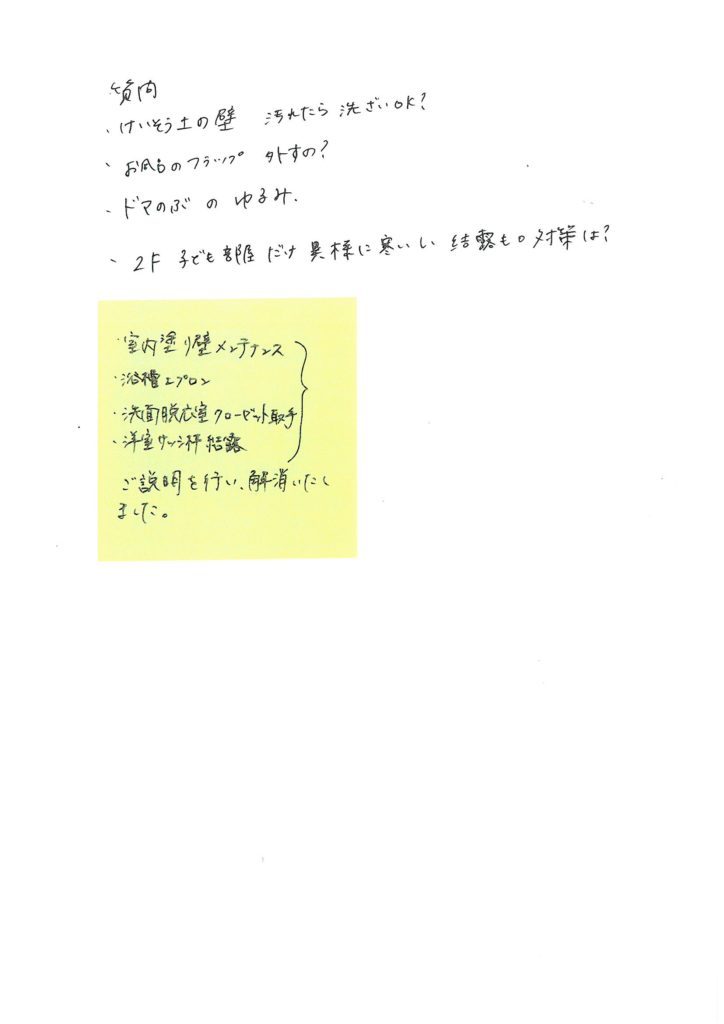 質問
・けいそう土の壁 汚れたら 洗ざいOK?
・お風呂のフラップ 外すの?
・ドアのぶ の ゆるみ.
・2F 子ども部屋 だけ 異様に寒いし 結露も。対策は?
・室内塗り壁メンテナンス
・浴槽エプロン
・洗面脱衣室クローゼット取手
・洋室サッシ枠結露
ご説明を行い、解消いたし
ました。